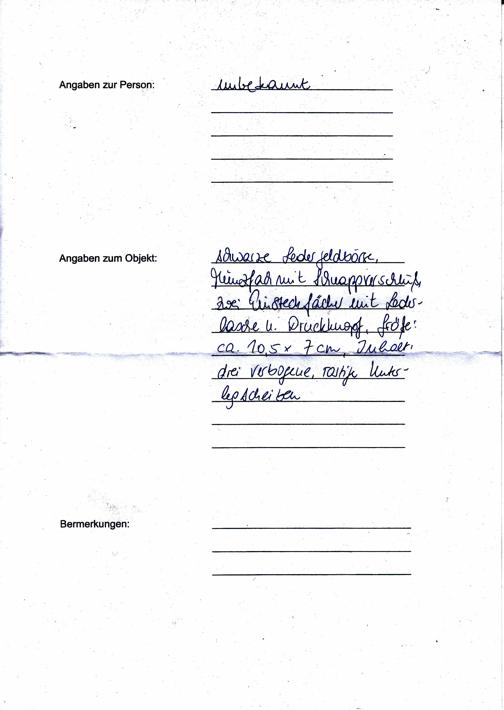 Angaben zur Person: unbekannt
Angaben zum Objekt: schwarze Ledergeldbörse,
Münzfach mit Schnappverschluß,
zwei Einsteckfächer mit Leder-
lasche u. Druckknopf, Größe:
ca. 10,5 x 7 cm, Inhalt:
drei verbogene, rostige Unter-
legscheiben
Bermerkungen: